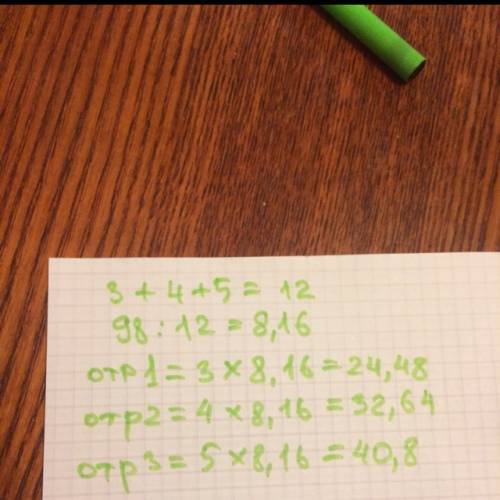 3 + 4 + 5 = 12
98 : 12 = 8,16
отр 1 = 3 × 8,16 = 24,48
отр 2 = 4 × 8,16 = 32,64
отр 3 = 5 × 8,16 = 40,8